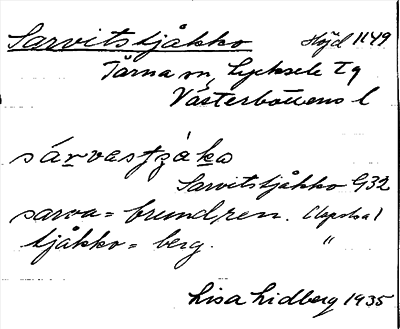 Sarvitstjåkko Höjd 1149
Tärna sn, Lycksele tg
Västerbottens l
sárvastjåkə
Sarvitstjåkko G32
sarva = brund, ren. (lapska)
tjåkko = berg. "
Lisa Lidberg 1935